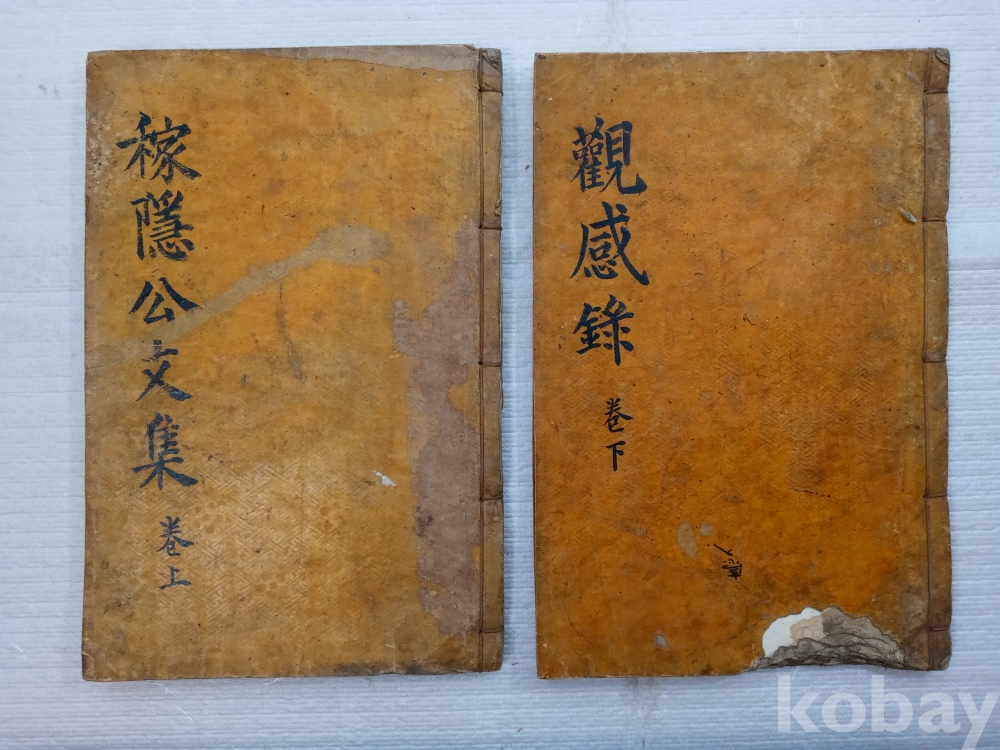 稼隱公文集
卷上
觀感錄
卷下
kobay